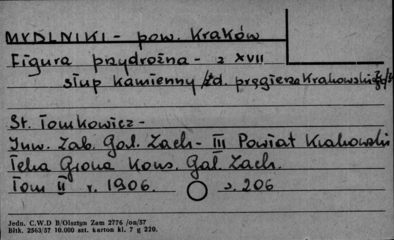 MYDLNIKI - pow. Kraków
Figura przydrożna - z XVII
słup kamienny /zd. pręgierza Krakowskiego/
St. Tomkowicz -
Inw. Zab. Gal. Zach - III Powiat Krakowski
Teka Grona Kons. Gal. Zach.
Tom II r. 1906. s. 206
Jedn. C.W.D B/Olsztyn Zam 2776 /on/57
Bltk. 2563/57 10.000 szt. karton kl. 7 g 220.